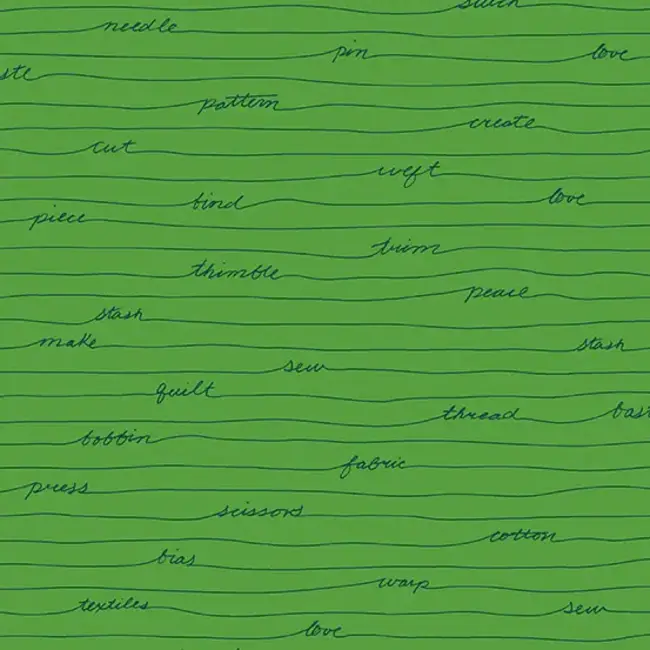 stitch
needle
pin love
ste
pattern
create
cut
weft
bind love
piece
trim
thimble
peace
stash
make stash
sew
quilt
thread bast
bobbin
fabric
press
scissors
cotton
bias
warp
textiles sew
love